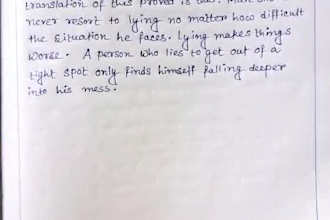 translation of this proved is that. Man
never resort to lying no matter how difficult
the situation he faces. Lying makes things
worse. A person who lies to get out of a
tight spot only finds himself falling deeper
into his mess.